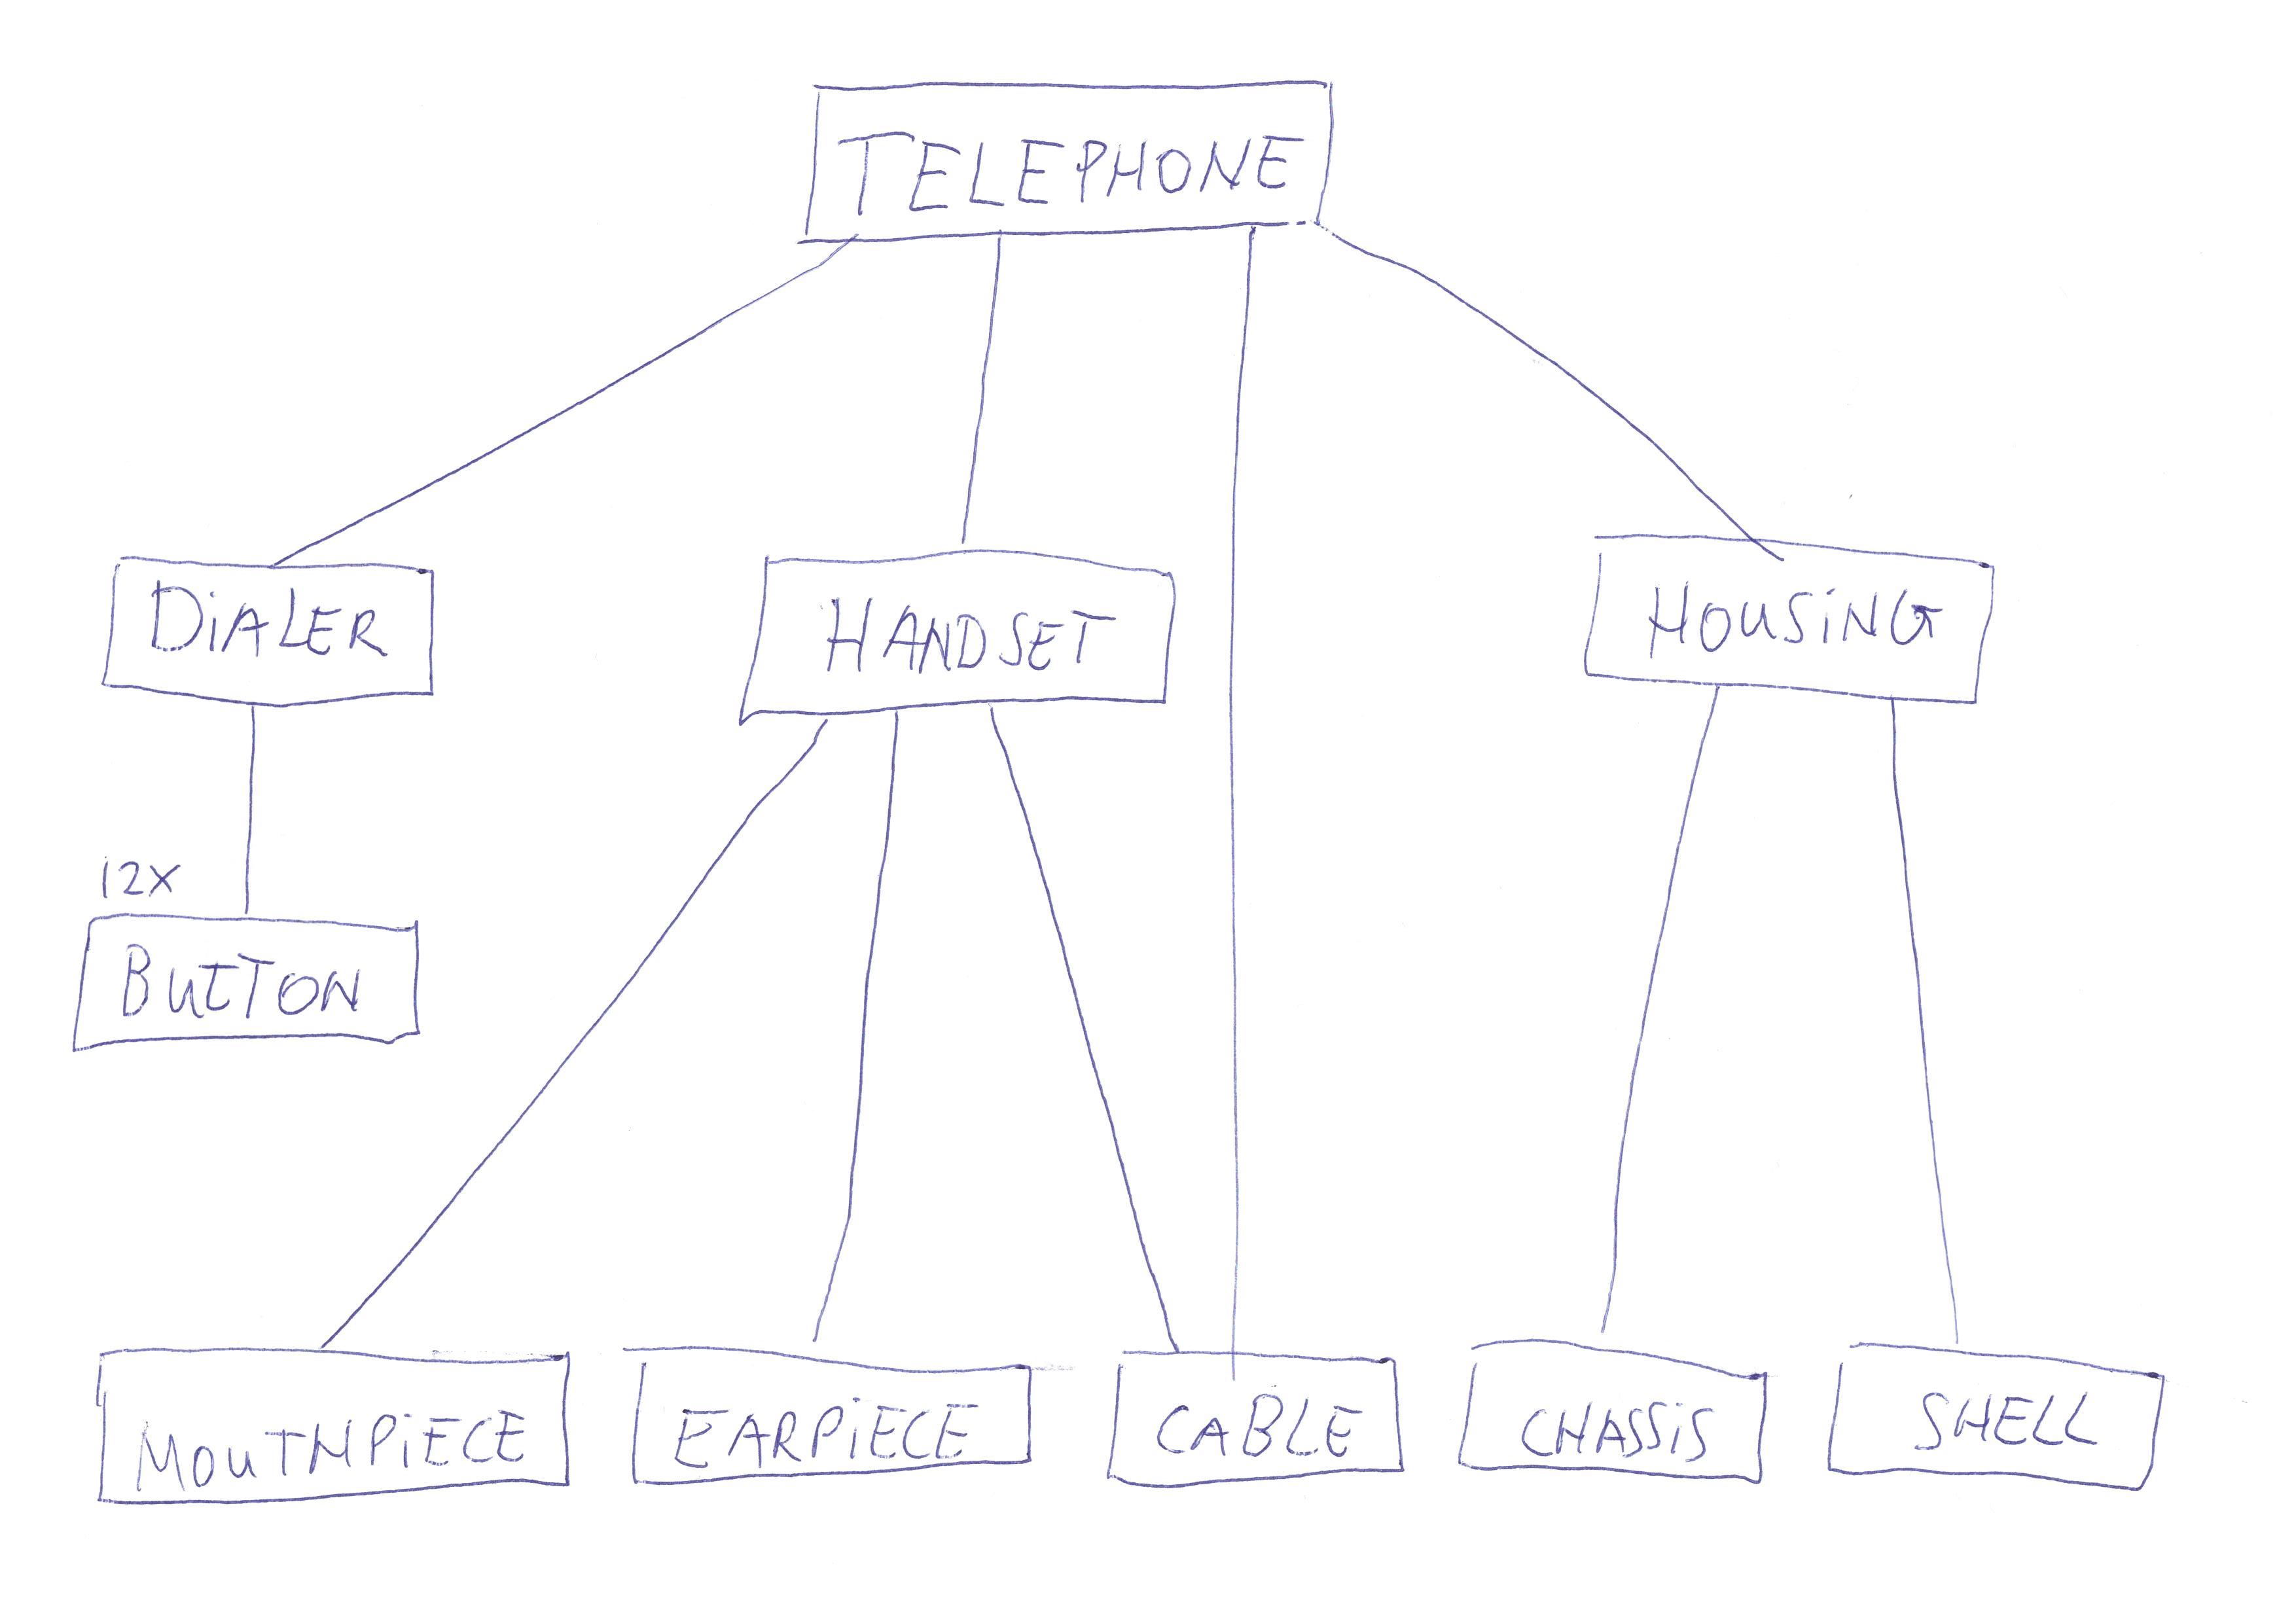 TELEPHONE
DiALER
HANDSET
HOUSiNG
12X
BUTTON
MOUTHPiECE
EARPiECE
CABLE
CHASSiS
SHELL